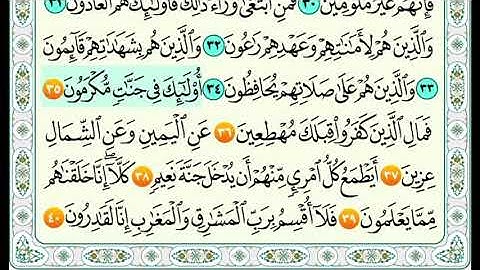 فَإِنَّهُمْ غَيْرُ مَلُومِينَ ٣٠ فَمَنِ ٱبْتَغَىٰ وَرَآءَ ذَٰلِكَ فَأُو۟لَٰٓئِكَ هُمُ ٱلْعَادُونَ ٣١
وَٱلَّذِينَ هُمْ لِأَمَٰنَٰتِهِمْ وَعَهْدِهِمْ رَٰعُونَ ٣٢ وَٱلَّذِينَ هُم بِشَهَٰدَٰتِهِمْ قَآئِمُونَ
٣٣ وَٱلَّذِينَ هُمْ عَلَىٰ صَلَاتِهِمْ يُحَافِظُونَ ٣٤ أُو۟لَٰٓئِكَ فِى جَنَّٰتٍ مُّكْرَمُونَ ٣٥
فَمَالِ ٱلَّذِينَ كَفَرُوا۟ قِبَلَكَ مُهْطِعِينَ ٣٦ عَنِ ٱلْيَمِينِ وَعَنِ ٱلشِّمَالِ
عِزِينَ ٣٧ أَيَطْمَعُ كُلُّ ٱمْرِئٍ مِّنْهُمْ أَن يُدْخَلَ جَنَّةَ نَعِيمٍ ٣٨ كَلَّآ إِنَّا خَلَقْنَٰهُم
مِّمَّا يَعْلَمُونَ ٣٩ فَلَآ أُقْسِمُ بِرَبِّ ٱلْمَشَٰرِقِ وَٱلْمَغَٰرِبِ إِنَّا لَقَٰدِرُونَ ٤٠